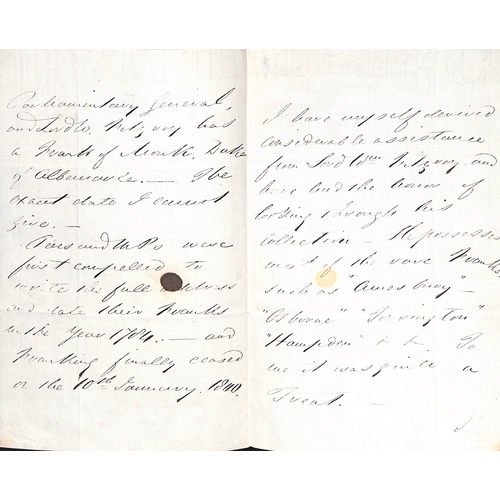 Parliamentary General,
and Lord Wm Fitzroy has
a Frank of Monk, Duke
of Albemarle. — The
exact date I cannot
give. —
Peers and M.Ps were
first compelled to
write the full address
and date their Franks
in the year 1784. — and
Franking finally ceased
on the 10th January, 1840.
I have myself derived
considerable assistance
from Lord Wm Fitzroy and
have had the honor of
looking through his
collection — He possesses
most of the rare Franks
such as "Amesbury" —
"Osborne" "Torrington"
"Hampden" To
me it was quite a
Treat. —